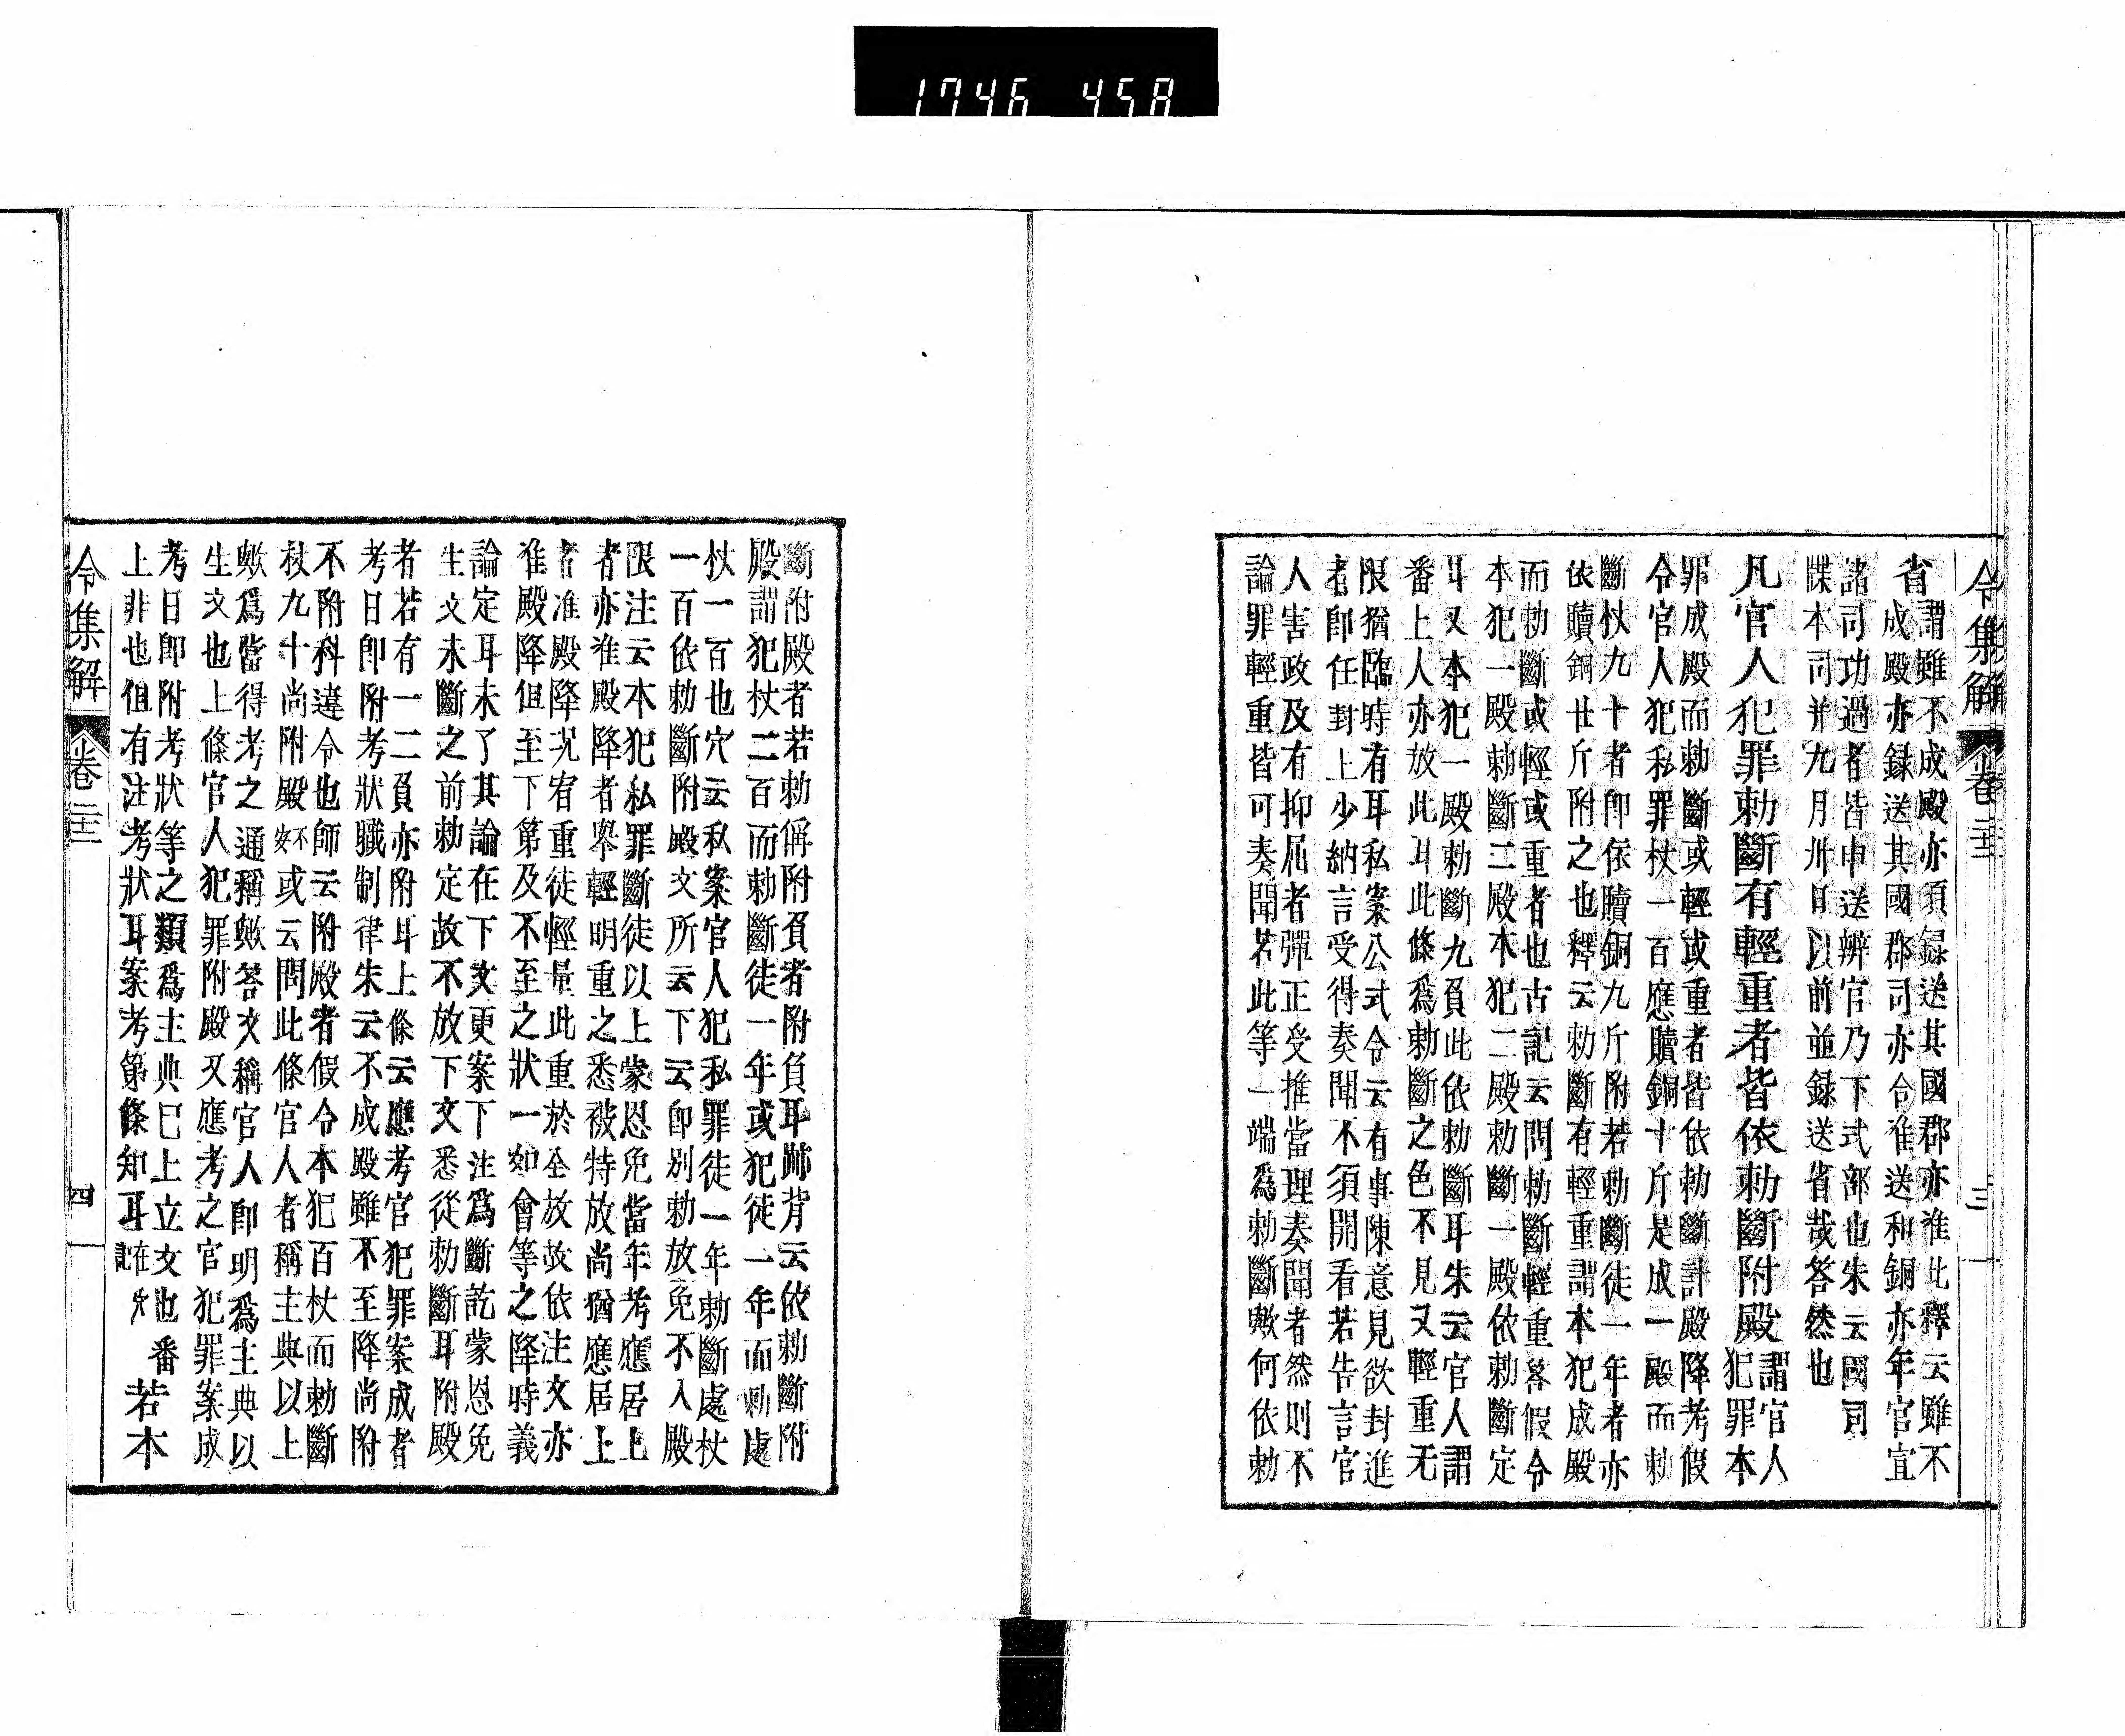 1746 458
令集解 卷二十二 三
省
謂雖不成殿亦須録送其國郡亦准此釋云雖不
成殿亦録送其國郡司亦合准送和銅亦年官宜
諸司功過者皆申送辨官乃下式部也朱云國司
牒本司并九月卅日以前並録送省哉答然也
凡官人犯罪勅斷有輕重者皆依勅斷附殿
謂官人
犯罪本
罪成殿而勅斷或輕或重者皆依勅斷計殿降考假
令官人犯私罪杖一百應贖銅十斤是成一殿而勅
斷杖九十者即依贖銅九斤附若勅斷徒一年者亦
依贖銅廿斤附之也釋云勅斷有輕重謂本犯成殿
而勅斷或輕或重者也古記云問勅斷輕重答假令
本犯一殿勅斷二殿本犯二殿勅斷一殿依勅斷定
耳又本犯一殿勅斷九負此依勅斷耳朱云官人謂
番上人亦放此耳此條爲勅斷之色不見又輕重无
限猶臨時有耳私案公式令云有事陳意見欲封進
者即任封上少納言受得奏聞不須開看若告言官
人害政及有抑屈者彈正受推當理奏聞者然則不
論罪輕重皆可奏聞若此等一端爲勅斷歟何依勅
斷附殿者若勅俻附負者附負耳跡背云依勅斷附
殿謂犯杖二百而勅斷徒一年或犯徒一年而勅處
杖一百也穴云私案官人犯私罪徒一年勅斷處杖
一百依勅斷附殿文所云下云即別勅放免不入殿
限注云本犯私罪斷徒以上蒙恩免當年考應居上
者亦准殿降者舉輕明重之悉被特放尚猶應居上
者准殿降况宥重徒輕量此重於全放故依注文亦
准殿降但至下第及不至之狀一如會等之降時義
論定耳未了其論在下文更案下注爲斷訖蒙恩免
生文未斷之前勅定故不放下文悉從勅斷耳附殿
者若有一二負亦附耳上條云應考官犯罪案成者
考日即附考狀職制律朱云不成殿雖不至降尚附
不附科違令也師云附殿者假令本犯百杖而勅斷
杖九十尚附殿不安或云問此條官人者稱主典以上
歟爲當得考之通稱歟答文稱官人即明爲主典以
生文也上條官人犯罪附殿又應考之官犯罪案成
考日即附考狀等之類爲主典已上立文也番
上非也但有注考狀耳案考第條知耳 若本
令集解 卷二十二 四